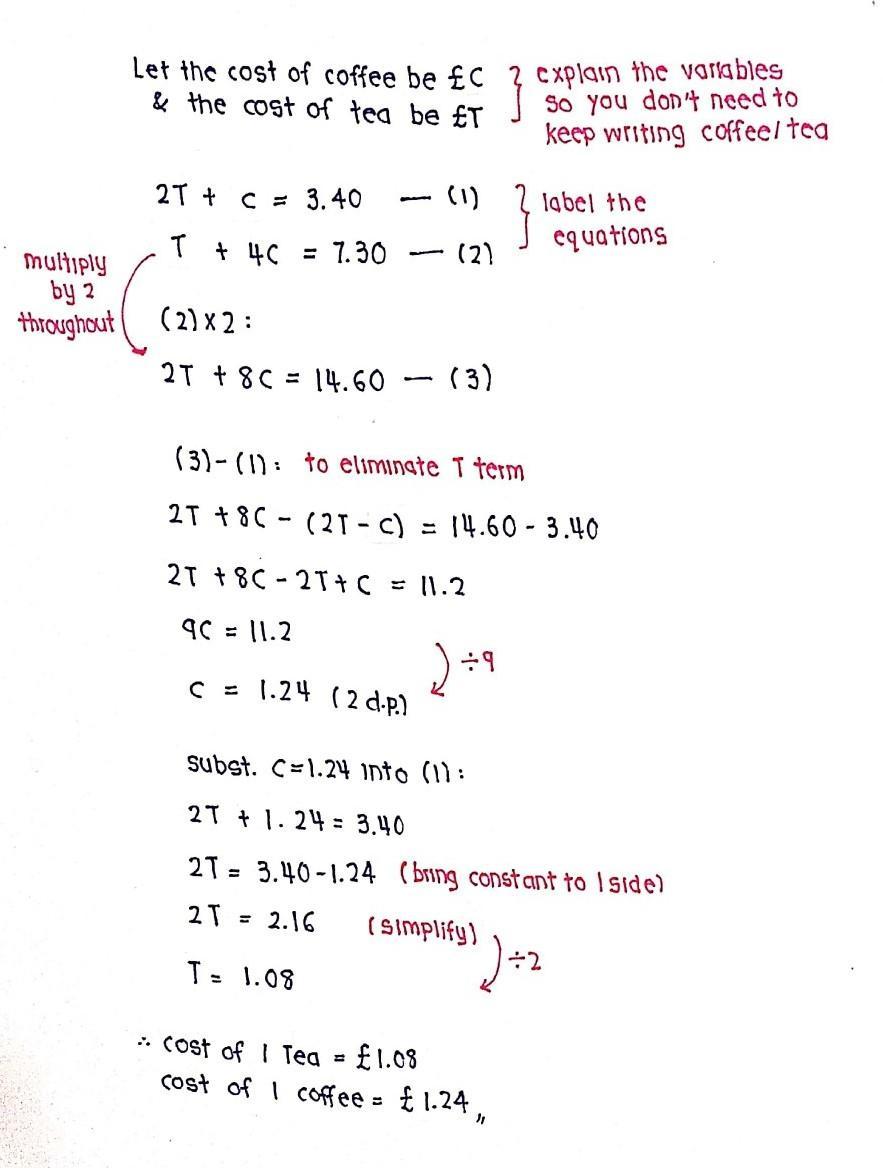 Let the cost of coffee be £C
& the cost of tea be £T
explain the variables
so you don't need to
keep writing coffee/tea
2T + C = 3.40 — (1)
T + 4C = 7.30 — (2)
label the
equations
multiply
by 2
throughout
(2) x 2 :
2T + 8C = 14.60 — (3)
(3) - (1) : to eliminate T term
2T + 8C - (2T - C) = 14.60 - 3.40
2T + 8C - 2T + C = 11.2
9C = 11.2
÷9
C = 1.24 (2 d.p.)
subst. C=1.24 into (1) :
2T + 1.24 = 3.40
2T = 3.40 - 1.24 (bring constant to 1 side)
2T = 2.16 (simplify)
÷2
T = 1.08
∴ cost of 1 Tea = £1.08
cost of 1 coffee = £1.24 ,,